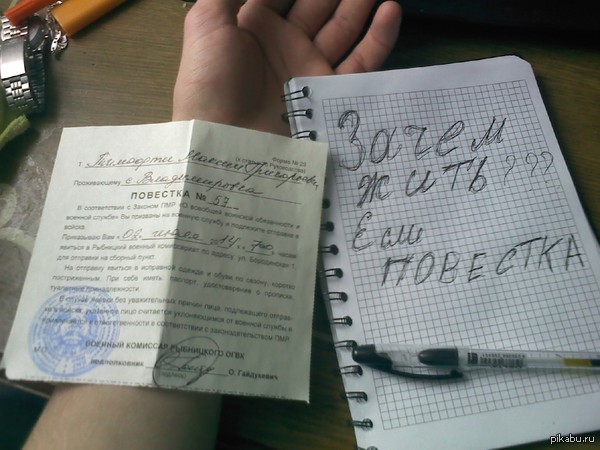 Форма № 29
г. Максим Григорович
Проживающему с. Владимировка
ПОВЕСТКА № 57
В соответствии с Законом ПМР «О всеобщей воинской обязанности и
военной службе» Вы призваны на военную службу и подлежите отправке в
войска.
Приказываю Вам «02» июля часам
явиться в Рыбницкий военный комиссариат по адресу, ул.
для отправки на сборный пункт.
На отправку явиться в исправной одежде и обуви по сезону, коротко
постриженным. При себе иметь: паспорт, удостоверение о приписке,
туалетные принадлежности.
В случае неявки без уважительных причин лица, подлежащего отправ-
ке в войска, указанное лицо считается уклоняющимся от военной службы и
привлекается к ответственности в соответствии с законодательством ПМР
ВОЕННЫЙ КОМИССАР РЫБНИЦКОГО ОГВК
подполковник О. Гайдукевич
Зачем
жить ???
Если
ПОВЕСТКА
pikabu.ru